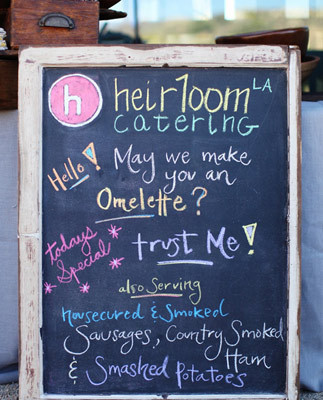 h heirloom LA
catering
Hello! May we make
you an
Omelette?
todays
Special
trust Me!
also Serving
housecured & Smoked
Sausages, Country Smoked
Ham
& Smashed Potatoes